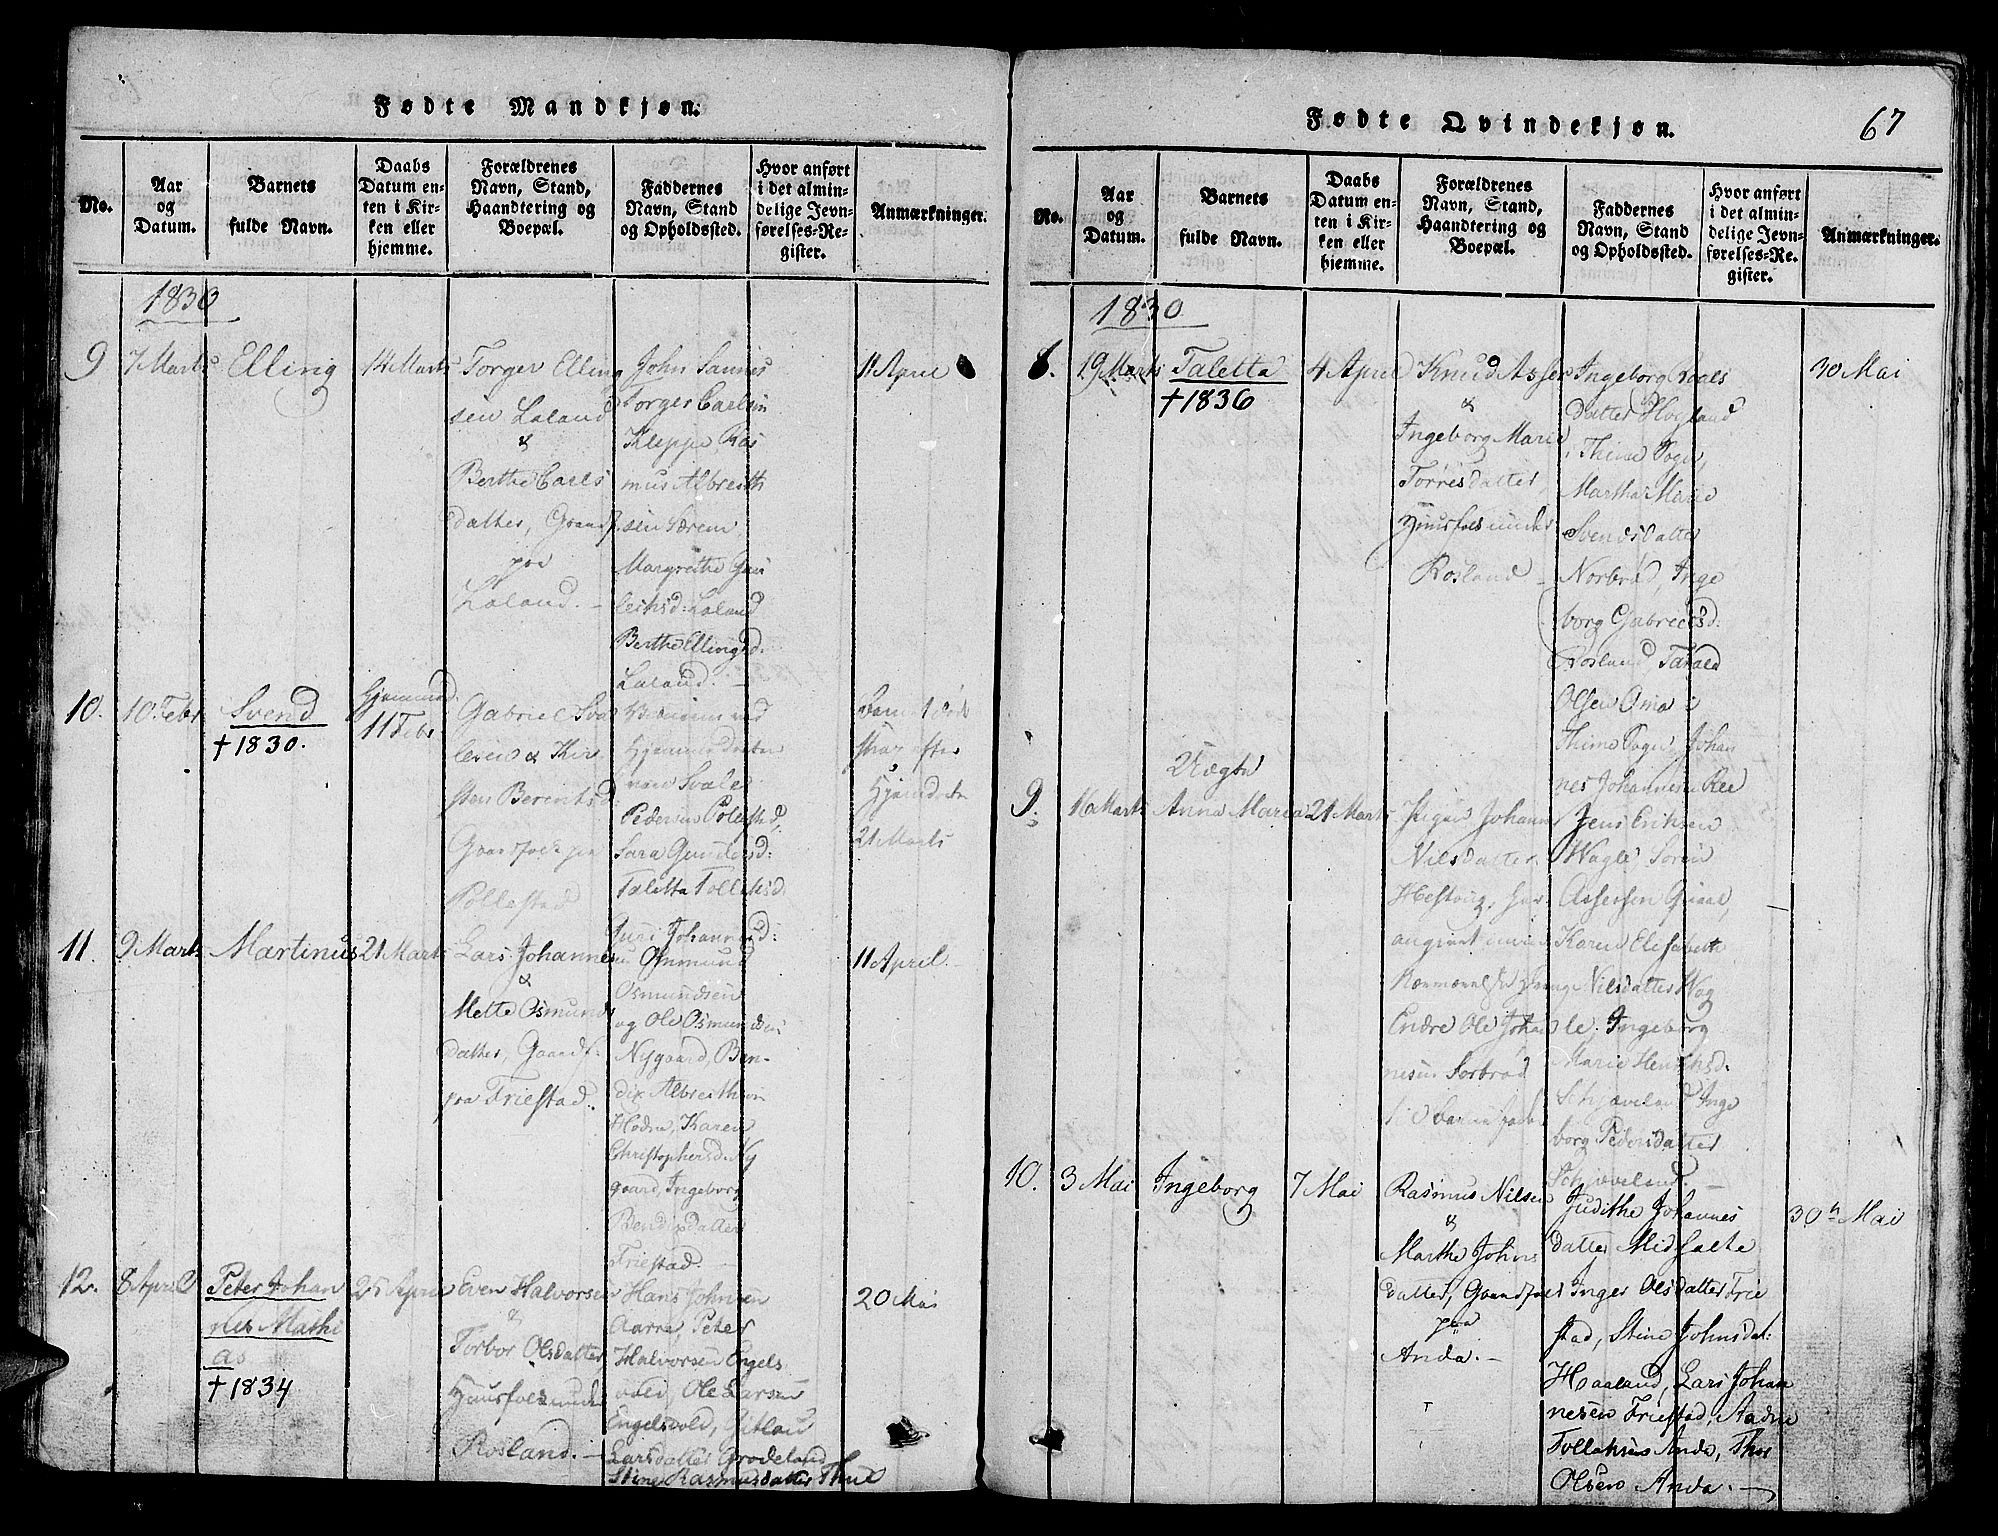 Fødte Mandkjøn.
No.
Aar
og
Datum.
Barnets
fulde Navn.
Daabs
Datum en-
ten i Kir-
ken eller
hjemme.
Forældrenes
Navn, Stand,
Haandtering og
Boepæl.
Faddernes
Navn, Stand
og Opholdssted.
Hvor anført
i det almin-
delige Jevn-
førelses-Re-
gister.
Anmærkninger.
1830
9
7 Marts
Elling
14 Marts
Torger Elling
sen Laland
&
Berthe Carls
datter, Gaardf.
paa
Laland. -
John Sannes
Torger Carlsen
Kleppe, Ras
mus Albreith
sen Særem
Margrethe
Laland
Berthe Ellingsd.
Laland. -
11 April
10.
10 Febr
Svend
+ 1830.
Hjemmed.
11 Febr
Gabriel Sva
lesen & Kir
sten Berentsd:
Gaardfolk paa
Pollestad
ved
Hjemmedaaben
Svale
Pedersen Pollestad,
Sara Gundersd:
Taletta Tollefsd.
Guri Johannesd:
strax efter
Hjemdaab
21 Marts
11.
9 Marts
Martinus
21 Marts
Lars Johannes
&
Mette Osmunds
datter, Gaardf.
paa Friestad.
Osmundsen
og Ole Osmundsen
Nygaard, Ben-
dix Albreithsen
Hodne, Karen
Christophersd. Ny
gaard, Ingeborg
Bendixdatter
Friestad. -
11 April. -
12.
8 April
Peter Johan
nes Mathi
as
+ 1834
25 April
Even Halvorsen
&
Torbor Olsdatter,
Huusfolk under
Rosland. -
Hans Johnsen
Aarre, Peter
Halvorsen Engels
vold, Ole Larsen
Engelsvold, Gitlau
Larsdatter Grødeland
Stine Rasmusdatter Thue
20 Mai
Fødte Qvindekjøn.
67
No.
Aar
og
Datum.
Barnets
fulde Navn.
Daabs
Datum en-
ten i Kir-
ken eller
hjemme.
Forældrenes
Navn, Stand,
Haandtering og
Boepæl.
Faddernes
Navn, Stand
og Opholdssted.
Hvor anført
i det almin-
delige Jevn-
førelses-Re-
gister.
Anmærkninger.
1830
8.
19 Marts
Taletta
+ 1836
4 April
Knud Asser
&
Ingeborg Marie
Torresdatter,
Huusfolk under
Rosland -
Ingeborg Roals
datter Hogland
i Thime Sogn,
Martha Marie
Svendsdatter
Norbrød, Inge
borg Gabrielsd:
Rosland, Tarald
Olsen Oma i
Thime Sogn, Johan
nes Johannesen Ree
30 Mai
9.
16 Marts
Uægte
Anna Maria
21 Marts
Pigen Johanne
Nilsdatter
Hestvig, har
angivet
Endre Ole Johan
nesen Sørbrød
til barnefader
Jens Eriksen
Wagle Soren
Assersen Qviaal,
Karen Elisabeth
Nilsdatter Wog
le, Ingeborg
Marie Henrichsd.
Schjæveland Inge
borg Pedersdatter
Schjæveland. -
10.
3 Mai
Ingeborg
7 Mai
Rasmus Nilsen
&
Marthe Johns
datter, Gaardfolk
paa
Anda. -
Judithe Johannes
datter Midfalte
Inger Olsdatter Frie
stad, Stine Johnsdat:
Haaland, Lars Johan
nesen Friestad, Aadne
Tollaksen Anda, Thor
Olsen Anda. -
30n Mai